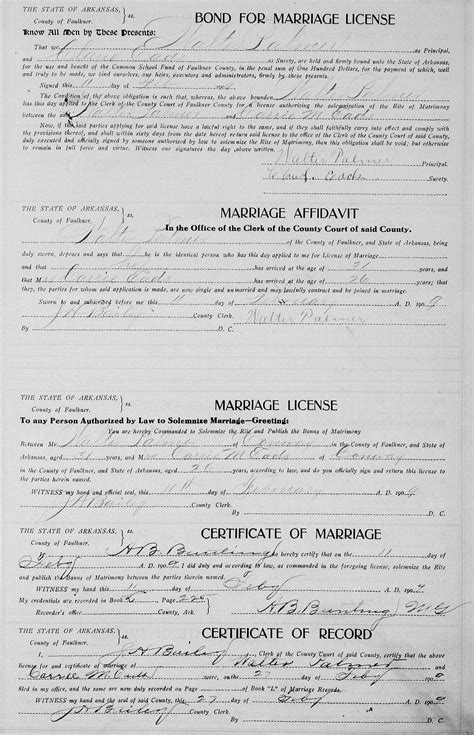 THE STATE OF ARKANSAS,
County of Faulkner. ss.
BOND FOR MARRIAGE LICENSE
Know All Men by These Presents:
That we Walt Palmer as Principal,
and as Surety, are held and firmly bound unto the State of Arkansas,
for the use and benefit of the Common School Fund of Faulkner County, in the penal sum of One Hundred Dollars, for the payment of which, well
and truly to be made, we bind ourselves, our heirs, executors and administrators, firmly by these presents.
Signed this 11 day of 190
The Condition of the above Obligation is such, that whereas, the above bounden Walter Palmer
has this day applied to the Clerk of the County Court of Faulkner County for a license authorizing the solemnization of the Rite of Matrimony
between the and Carrie McCado
Now, if the said parties applying for said license have a lawful right to the same, and if they shall faithfully carry into effect and comply with
the provisions thereof, and shall within sixty days from the day hereof return said license to the office of the Clerk of the County Court of said County,
duly executed and officially signed by someone authorized by law to solemnize the Rite of Matrimony, then this obligation shall be void; but otherwise
to remain in full force and virtue. Witness our signature the day above written.
Walter Palmer Principal.
Surety.
THE STATE OF ARKANSAS,
County of Faulkner. ss.
MARRIAGE AFFIDAVIT
In the Office of the Clerk of the County Court of said County.
Walt Palmer of the County of Faulkner, and State of Arkansas, being
duly sworn, deposes and says that he is the identical person who has this day applied to me for License of Marriage
and that has arrived at the age of 31 years, and
that Ms Carrie has arrived at the age of 20 years; that
they, the parties for whom said application is made, are now single and unmarried and may lawfully contract and be joined in marriage.
Sworn to and subscribed before me this 11 day of February A. D. 190 9
J H Bailey County Clerk. Walter Palmer
By D. C.
THE STATE OF ARKANSAS,
County of Faulkner. ss.
MARRIAGE LICENSE
To any Person Authorized by Law to Solemnize Marriage—Greeting:
You are hereby Commanded to Solemnize the Rite and Publish the Banns of Matrimony
Between Mr. Walter Palmer of Conway in the County of Faulkner, and State of
Arkansas, aged 31 years, and M s Carrie of Conway
in the County of Faulkner, and State of Arkansas, aged 20 years, according to law, and do you officially sign and return this license to
the parties herein named.
WITNESS my hand and official seal, this 11th day of February A. D. 190 9
J H Bailey County Clerk.
By D. C.
THE STATE OF ARKANSAS,
County of Faulkner. ss.
CERTIFICATE OF MARRIAGE
I, H. B. do hereby certify that on the 11 day of
Feby A. D. 190 9, I did duly and according to law, as commanded in the foregoing license, solemnize the Rite
and publish the Banns of Matrimony between the parties therein named.
WITNESS my hand this 11 day of Feby A. D. 190 9
My credentials are recorded in Book Page 225
Recorder's office County, Ark. H. B. M G
THE STATE OF ARKANSAS,
County of Faulkner. ss.
CERTIFICATE OF RECORD
I, J H Bailey Clerk of the County Court of said County, certify that the above
license for and certificate of marriage of Walter Palmer and
Carrie were, on the 27 day of Feby 190 9
filed in my office, and the same are now duly recorded on Page of Book "L" of Marriage Records.
WITNESS my hand and the seal of said County, this 27 day of Feby 190 9
J H Bailey County Clerk. By D. C.